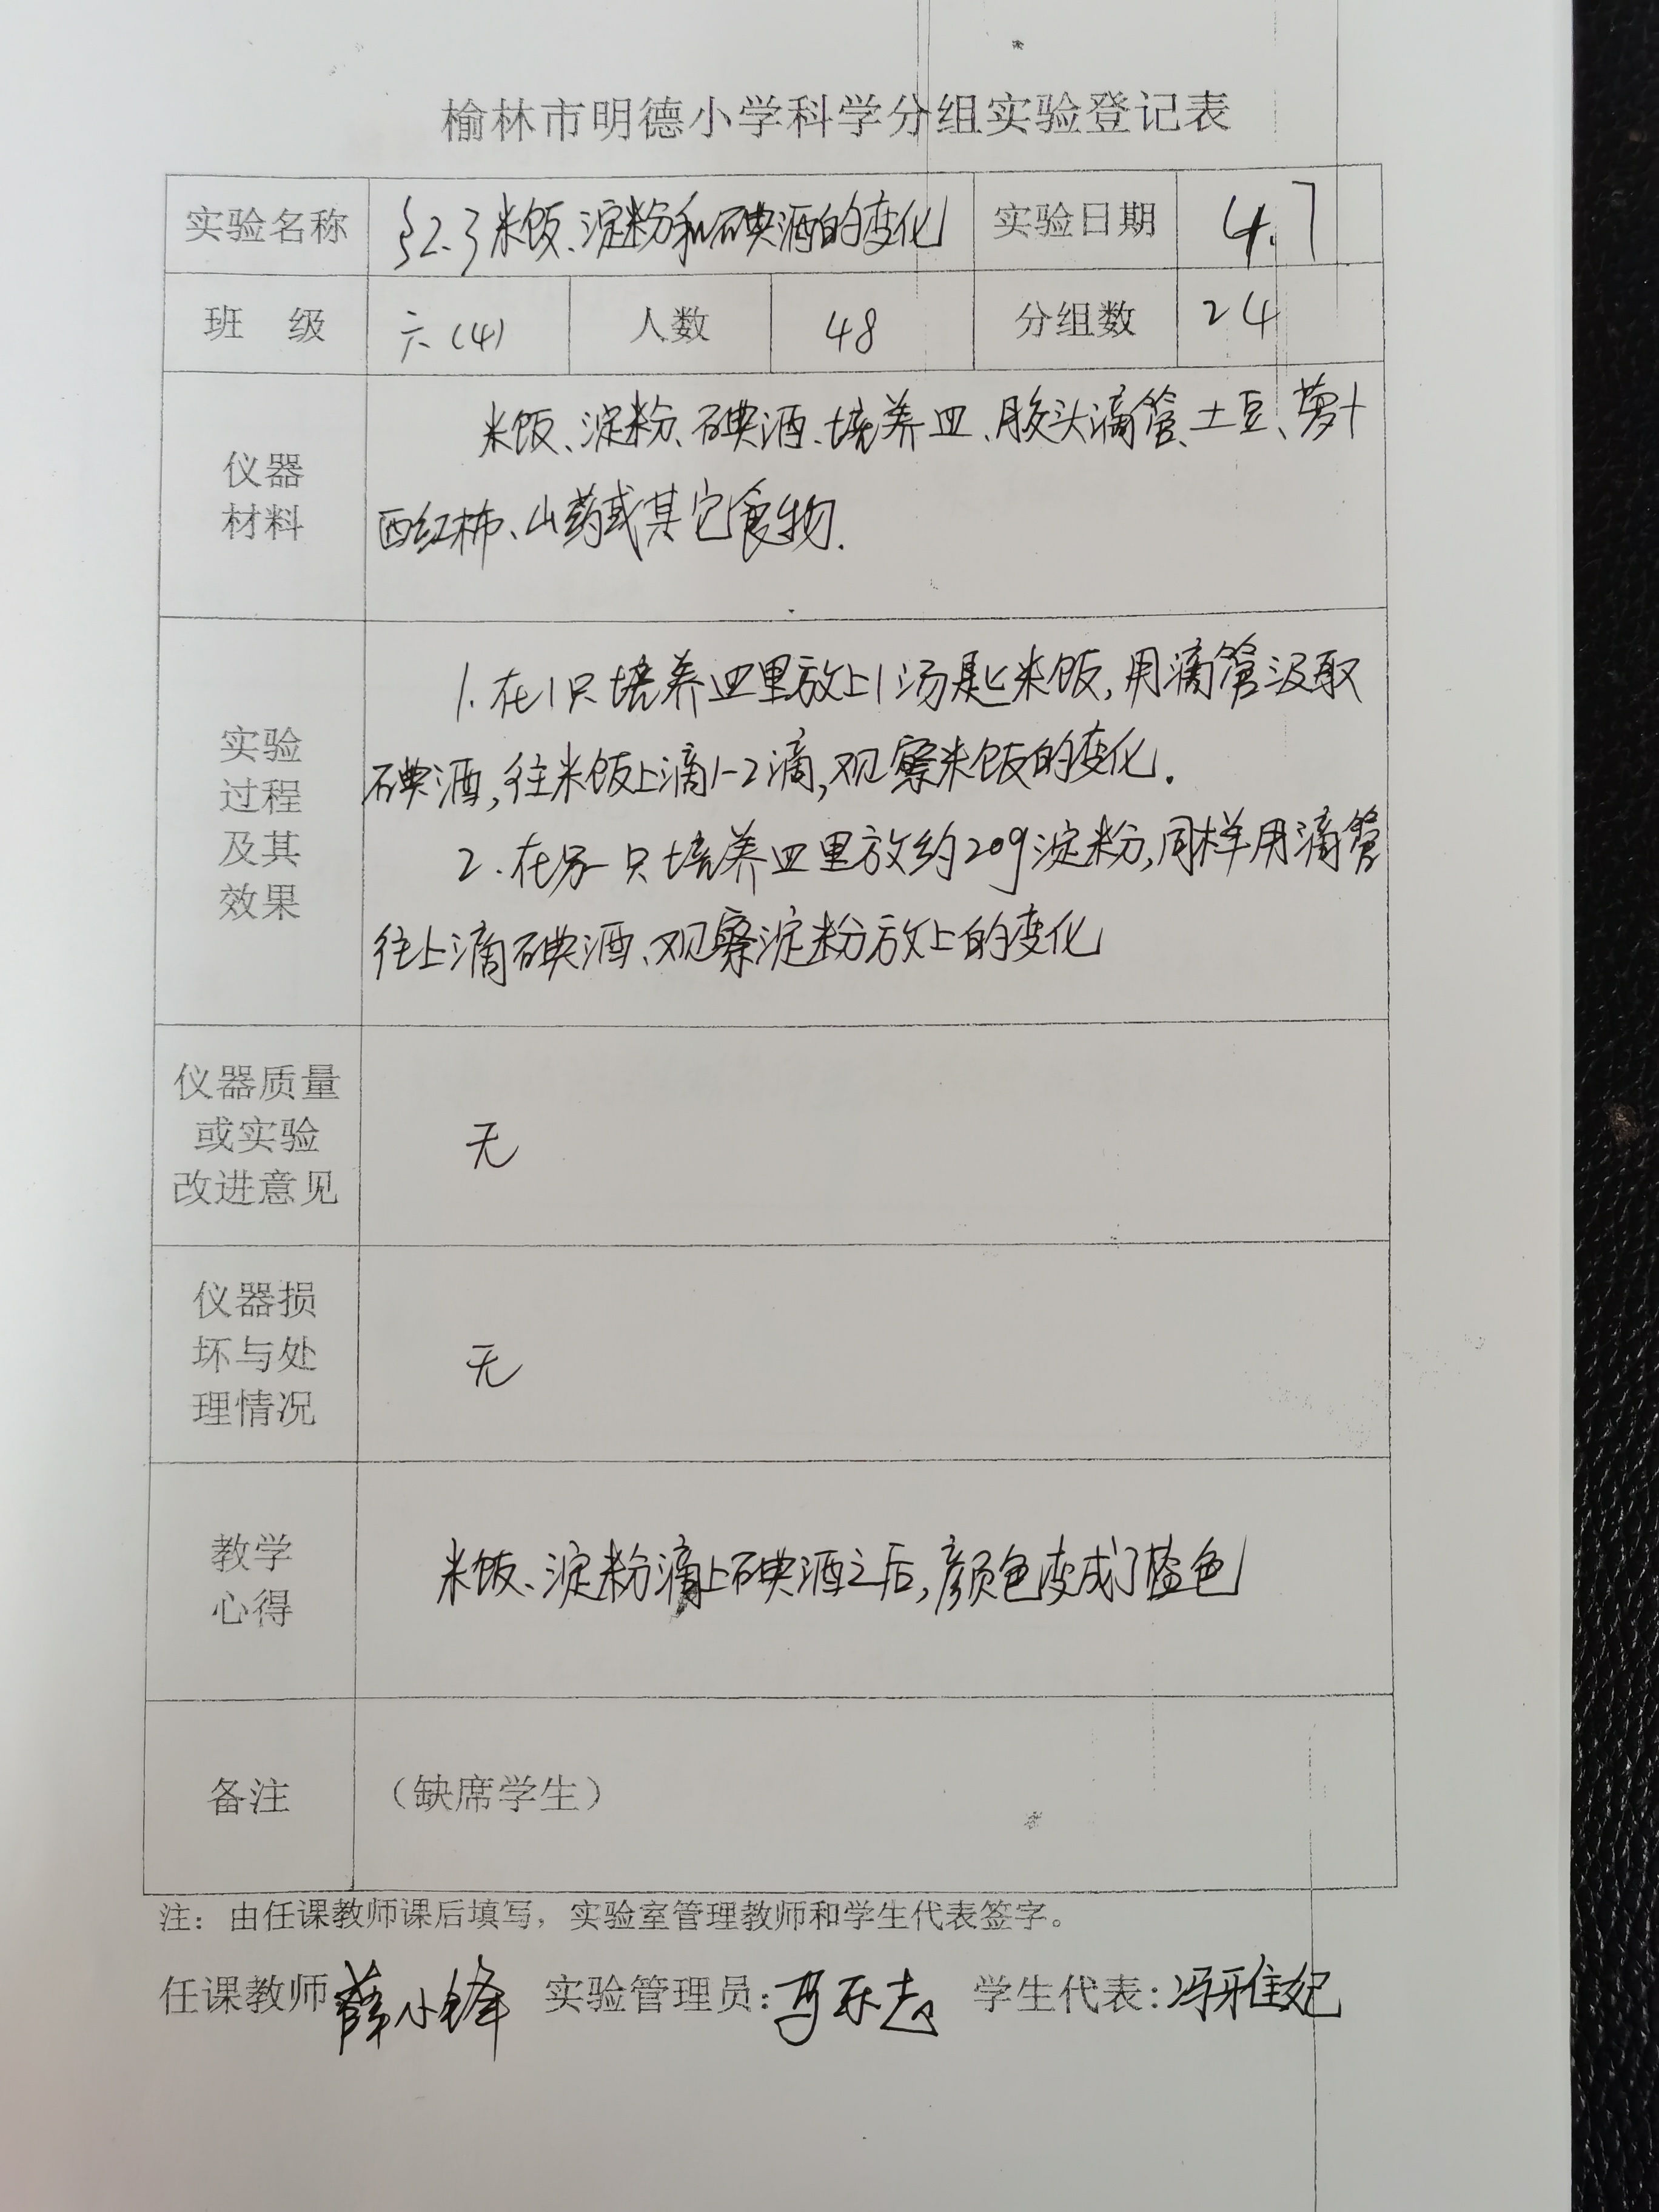 榆林市明德小学科学分组实验登记表
实验名称 §2.3米饭、淀粉和碘酒的变化 实验日期 4.7
班 级 六(4) 人数 48 分组数 24
仪器
材料
米饭、淀粉、碘酒、培养皿、胶头滴管、土豆、萝卜
西红柿、山药或其它食物.
实验
过程
及其
效果
1.在1只培养皿里放上1汤匙米饭,用滴管汲取
碘酒,往米饭上滴1-2滴,观察米饭的变化.
2.在另一只培养皿里放约20g淀粉,同样用滴管
往上滴碘酒、观察淀粉放上的变化
仪器质量
或实验
改进意见
无
仪器损
坏与处
理情况
无
教学
心得
米饭、淀粉滴上碘酒之后,颜色变成了蓝色
备注 (缺席学生)
注：由任课教师课后填写，实验室管理教师和学生代表签字。
任课教师 薛小锋 实验管理员: 学生代表:冯雅妃